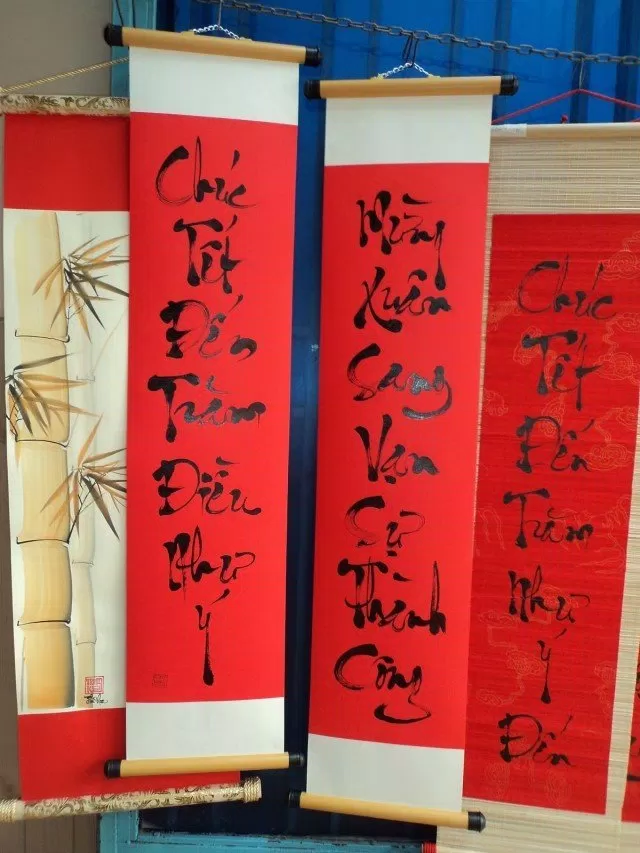 Chúc
Tết
Đến
Trăm
Điều
Như
Ý
Mừng
Xuân
Sang
Vạn
Sự
Thành
Công
Chúc
Tết
Đến
Trăm
Như
Ý
Đến